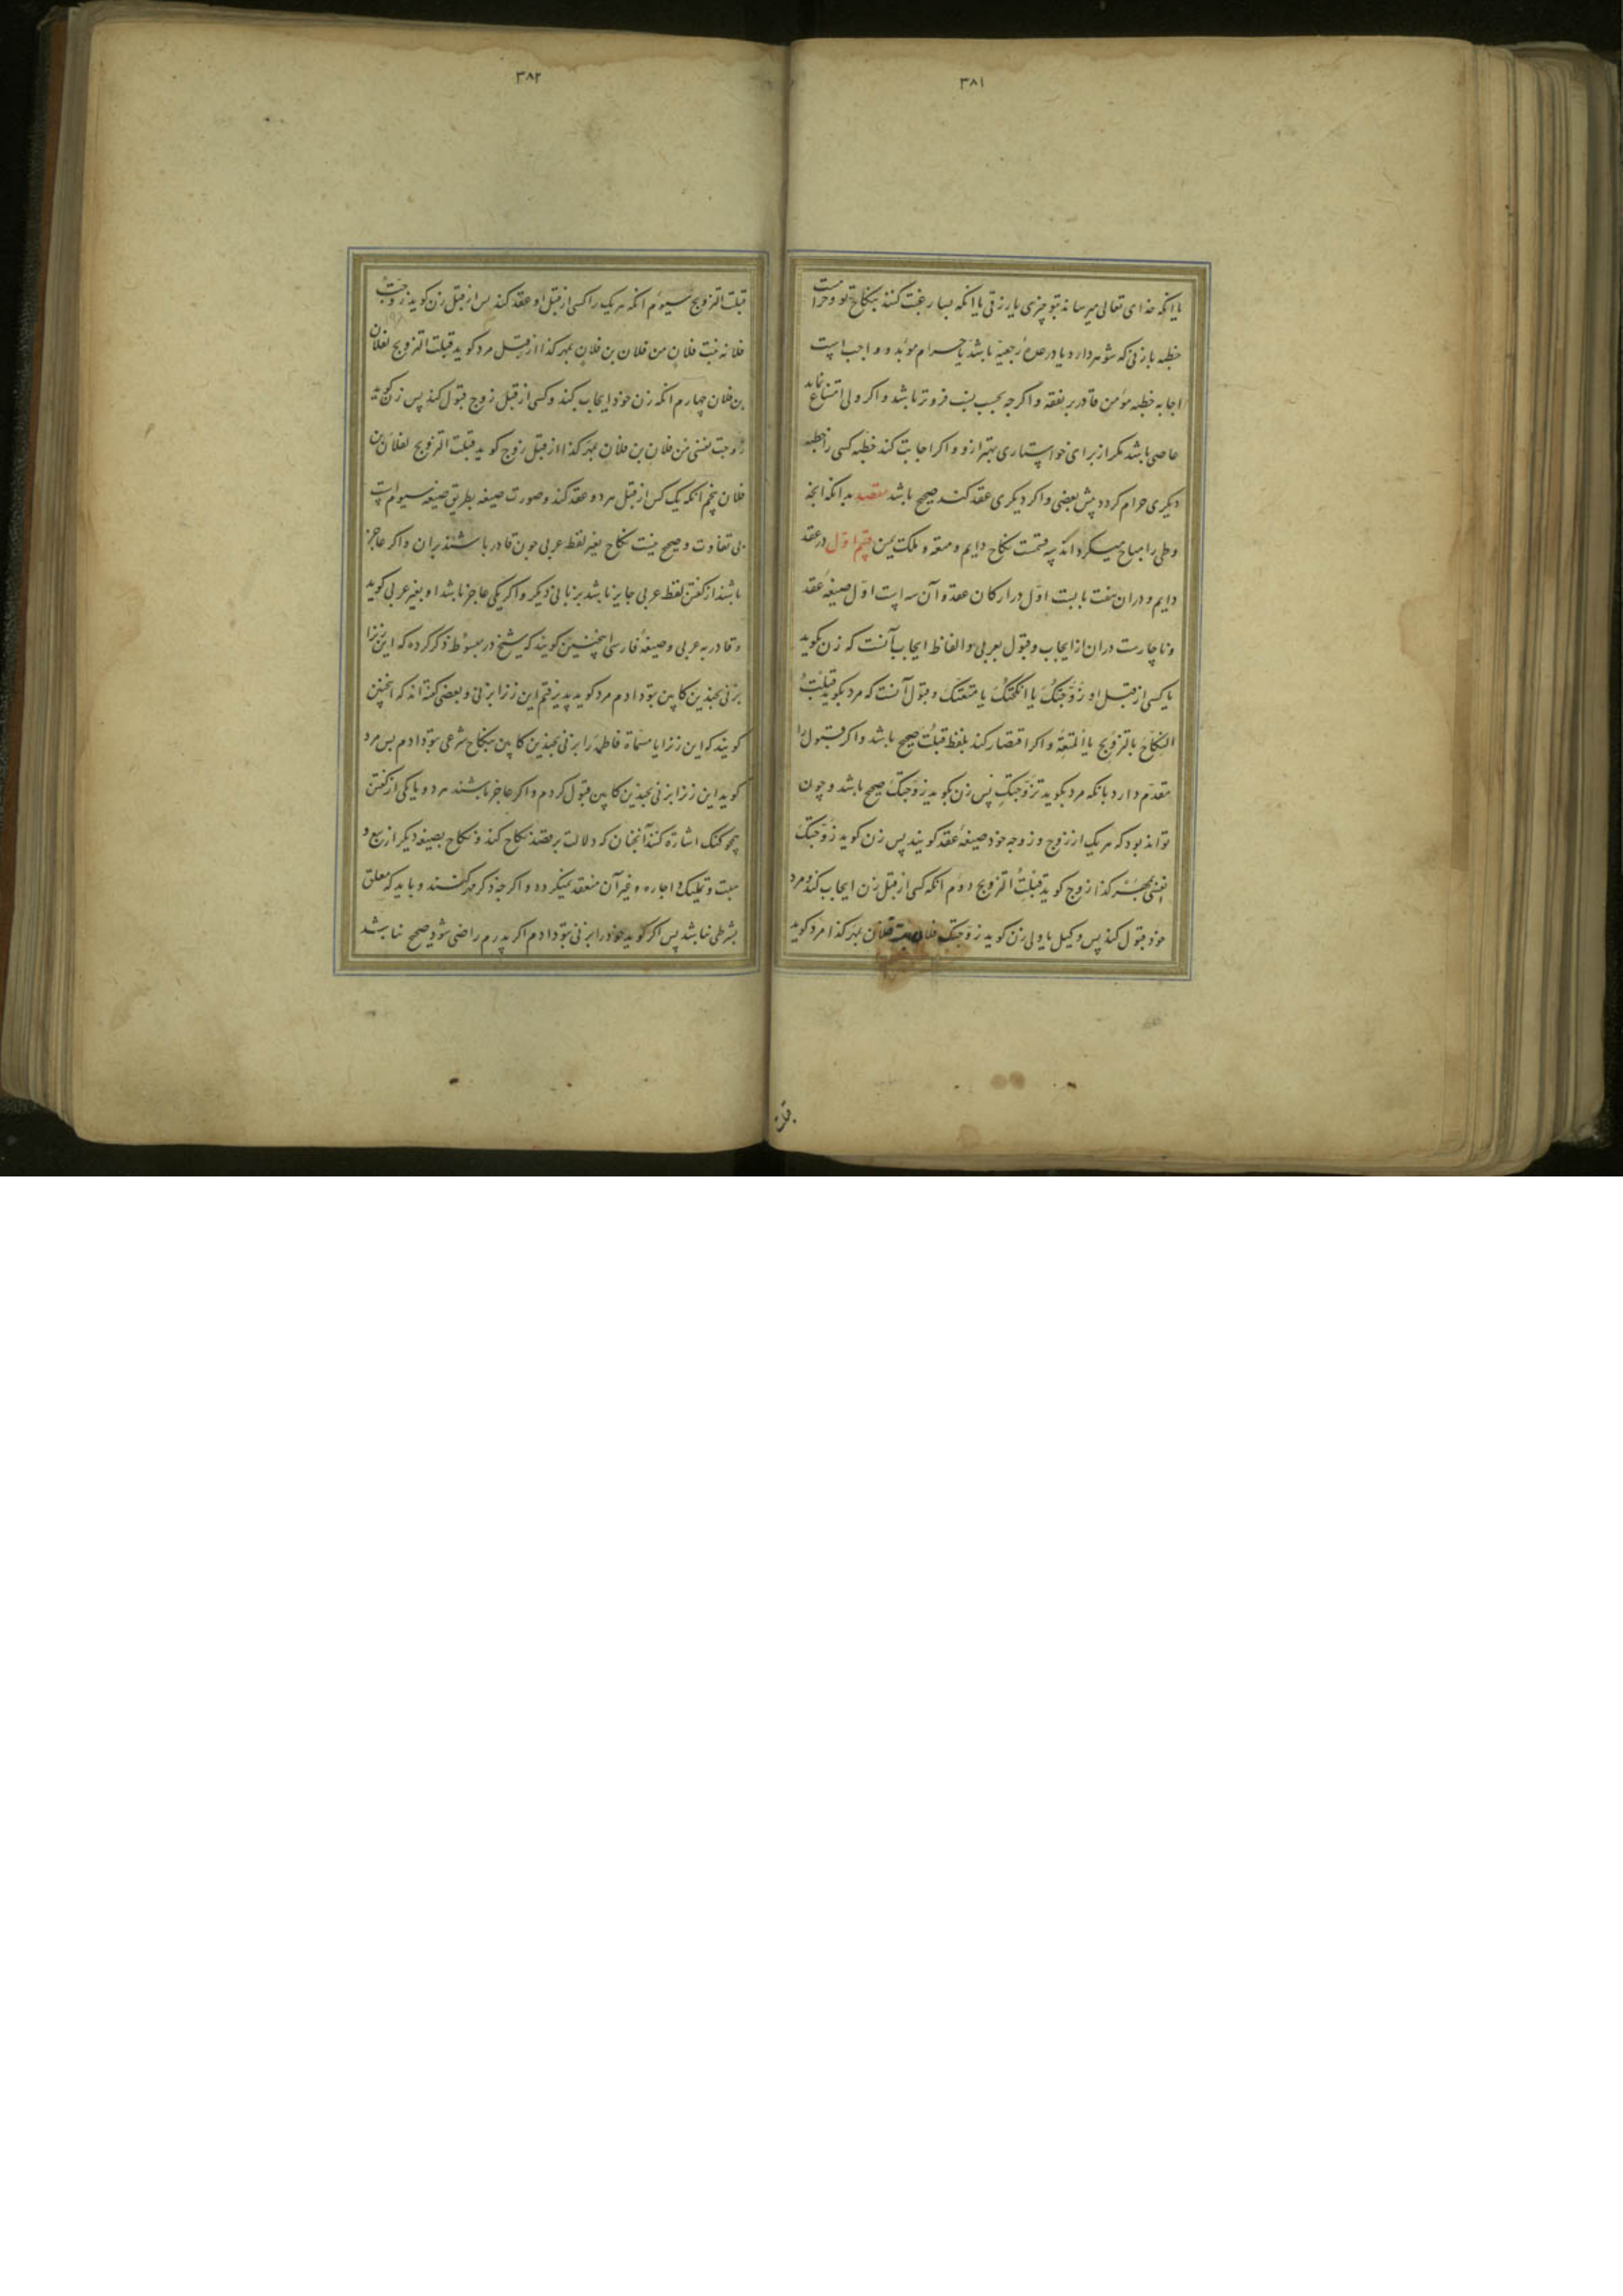 ۳۸۱
یا انکه خدای تعالی میرساند بتو چیزی یا رزقی یا انکه بسیار رغبت کنند بنکاح تو و حرامست
خطبه با زنی که شوهر دارد یا در عدهٔ رجعیّه باشد یا حرام مؤبد و واجب است
اجابه خطبه مؤمن قادر بر نفقه و اکرچه بحسب نسب فروتر باشد و اکر ولی امتناع نماید
عاصی باشد مکر از برای خواستاری بهتر ازو و اکر اجابت کند خطبه کسی را خطبه
دیکری حرام کردد پیش بعضی و اکر دیکری عقد کند صحیح باشد مقصد بدانکه انچه
وطی را مباح میکرداند سه قسمت نکاح دایم و متعه و ملک یمین قسم اوّل در عقد
دایم و دران هفت بابست اوّل در ارکان عقد و آن سه است اوّل صیغهٔ عقد
و ناچارست دران از ایجاب و قبول بعربی و الفاظ ایجاب آنست که زن بکوید
یا کسی از قبل او زَوَّجتُکَ یا انکحتُکَ یا متّعتُکَ و قبول آنست که مرد بکوید قَبِلتُ
النکاحَ یا التزویجَ یا المتعةَ و اکر اقتصار کند بلفظ قبلتُ صحیح باشد و اکر قبول را
مقدّم دارد بانکه مرد بکوید تزوّجتکِ پس زن بکوید زوّجتکَ صحیح باشد و چون
تواند بود که هر یک از زوج و زوجه خود صیغهٔ عقد کویند پس زن کوید زوّجتکَ
نفسی بمهر کذا زوج کوید قبلتُ التزویج دوم انکه کسی از قبل زن ایجاب کند و مرد
خود قبول کند پس وکیل یا ولی زن کوید زوجتک فلانه بنت فلان بمهر کذا مرد کوید
قبلت
۳۸۲
قبلت التزویج سیوم انکه هر یک را کسی از قبل او عقد کند پس از قبل زن کوید زوجت
فلانه بنت فلان من فلان بن فلان بمهر کذا از قبل مرد کوید قبلت التزویج لفلان
بن فلان چهارم انکه زن خود ایجاب کند و کسی از قبل زوج قبول کند پس زن کوید
زوجت نفسی من فلان بن فلان بمهر کذا از قبل زوج کوید قبلت التزویج لفلان بن
فلان پنجم انکه یک کس از قبل هر دو عقد کند و صورت صیغه بطریق صیغه سیوم است
بی تفاوت و صحیح نیست نکاح بغیر لفظ عربی چون قادر باشند بران و اکر عاجز
باشند از کفتن لفظ عربی جایز باشد بزبانی دیکر و اکر یکی عاجز باشد او بغیر عربی کوید
و قادر به عربی و صیغهٔ فارسی اینچنین کویند که شیخ در مبسوط ذکر کرده که این زنرا
بزنی بچندین کابین بتو دادم مرد کوید پذیرفتم این زنرا بزنی و بعضی کفته‌اند که اینچنین
کویند که این زنرا یا مسمّاة فاطمه را بزنی بچندین کابین بنکاح شرعی بتو دادم پس مرد
کوید این زنرا بزنی بچندین کابین قبول کردم و اکر عاجز باشند هر دو یا یکی از کفتن
همچو کنک اشارة کند آنچنان که دلالت بر قصد نکاح کند و نکاح بصیغه دیکر از بیع و
هبت و تملیک و اجاره و غیر آن منعقد نمیکردد و اکرچه ذکر مهر کنند و باید که معلق
بشرطی نباشد پس اکر کوید خود را بزنی بتو دادم اکر پدرم راضی شود صحیح نباشد